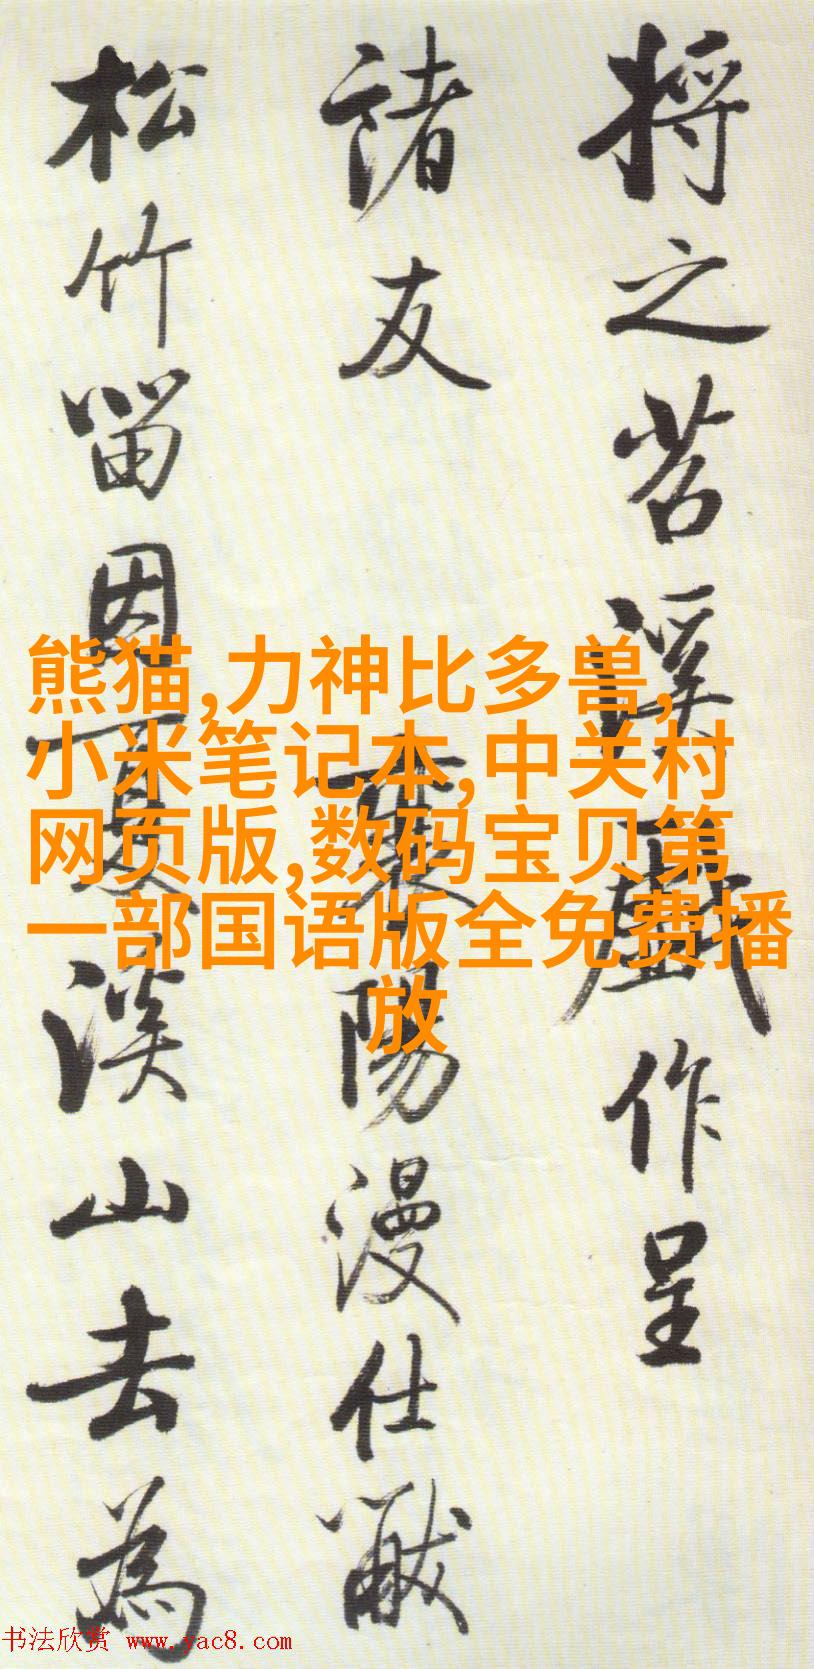 将之苕溪戲作呈
諸友
襄陽漫仕黻
松竹留因夏溪山去為
熊猫,力神比多兽,
小米笔记本,中关村
网页版,数码宝贝第
一部国语版全免费播
放
书法欣赏 www.yac8.com